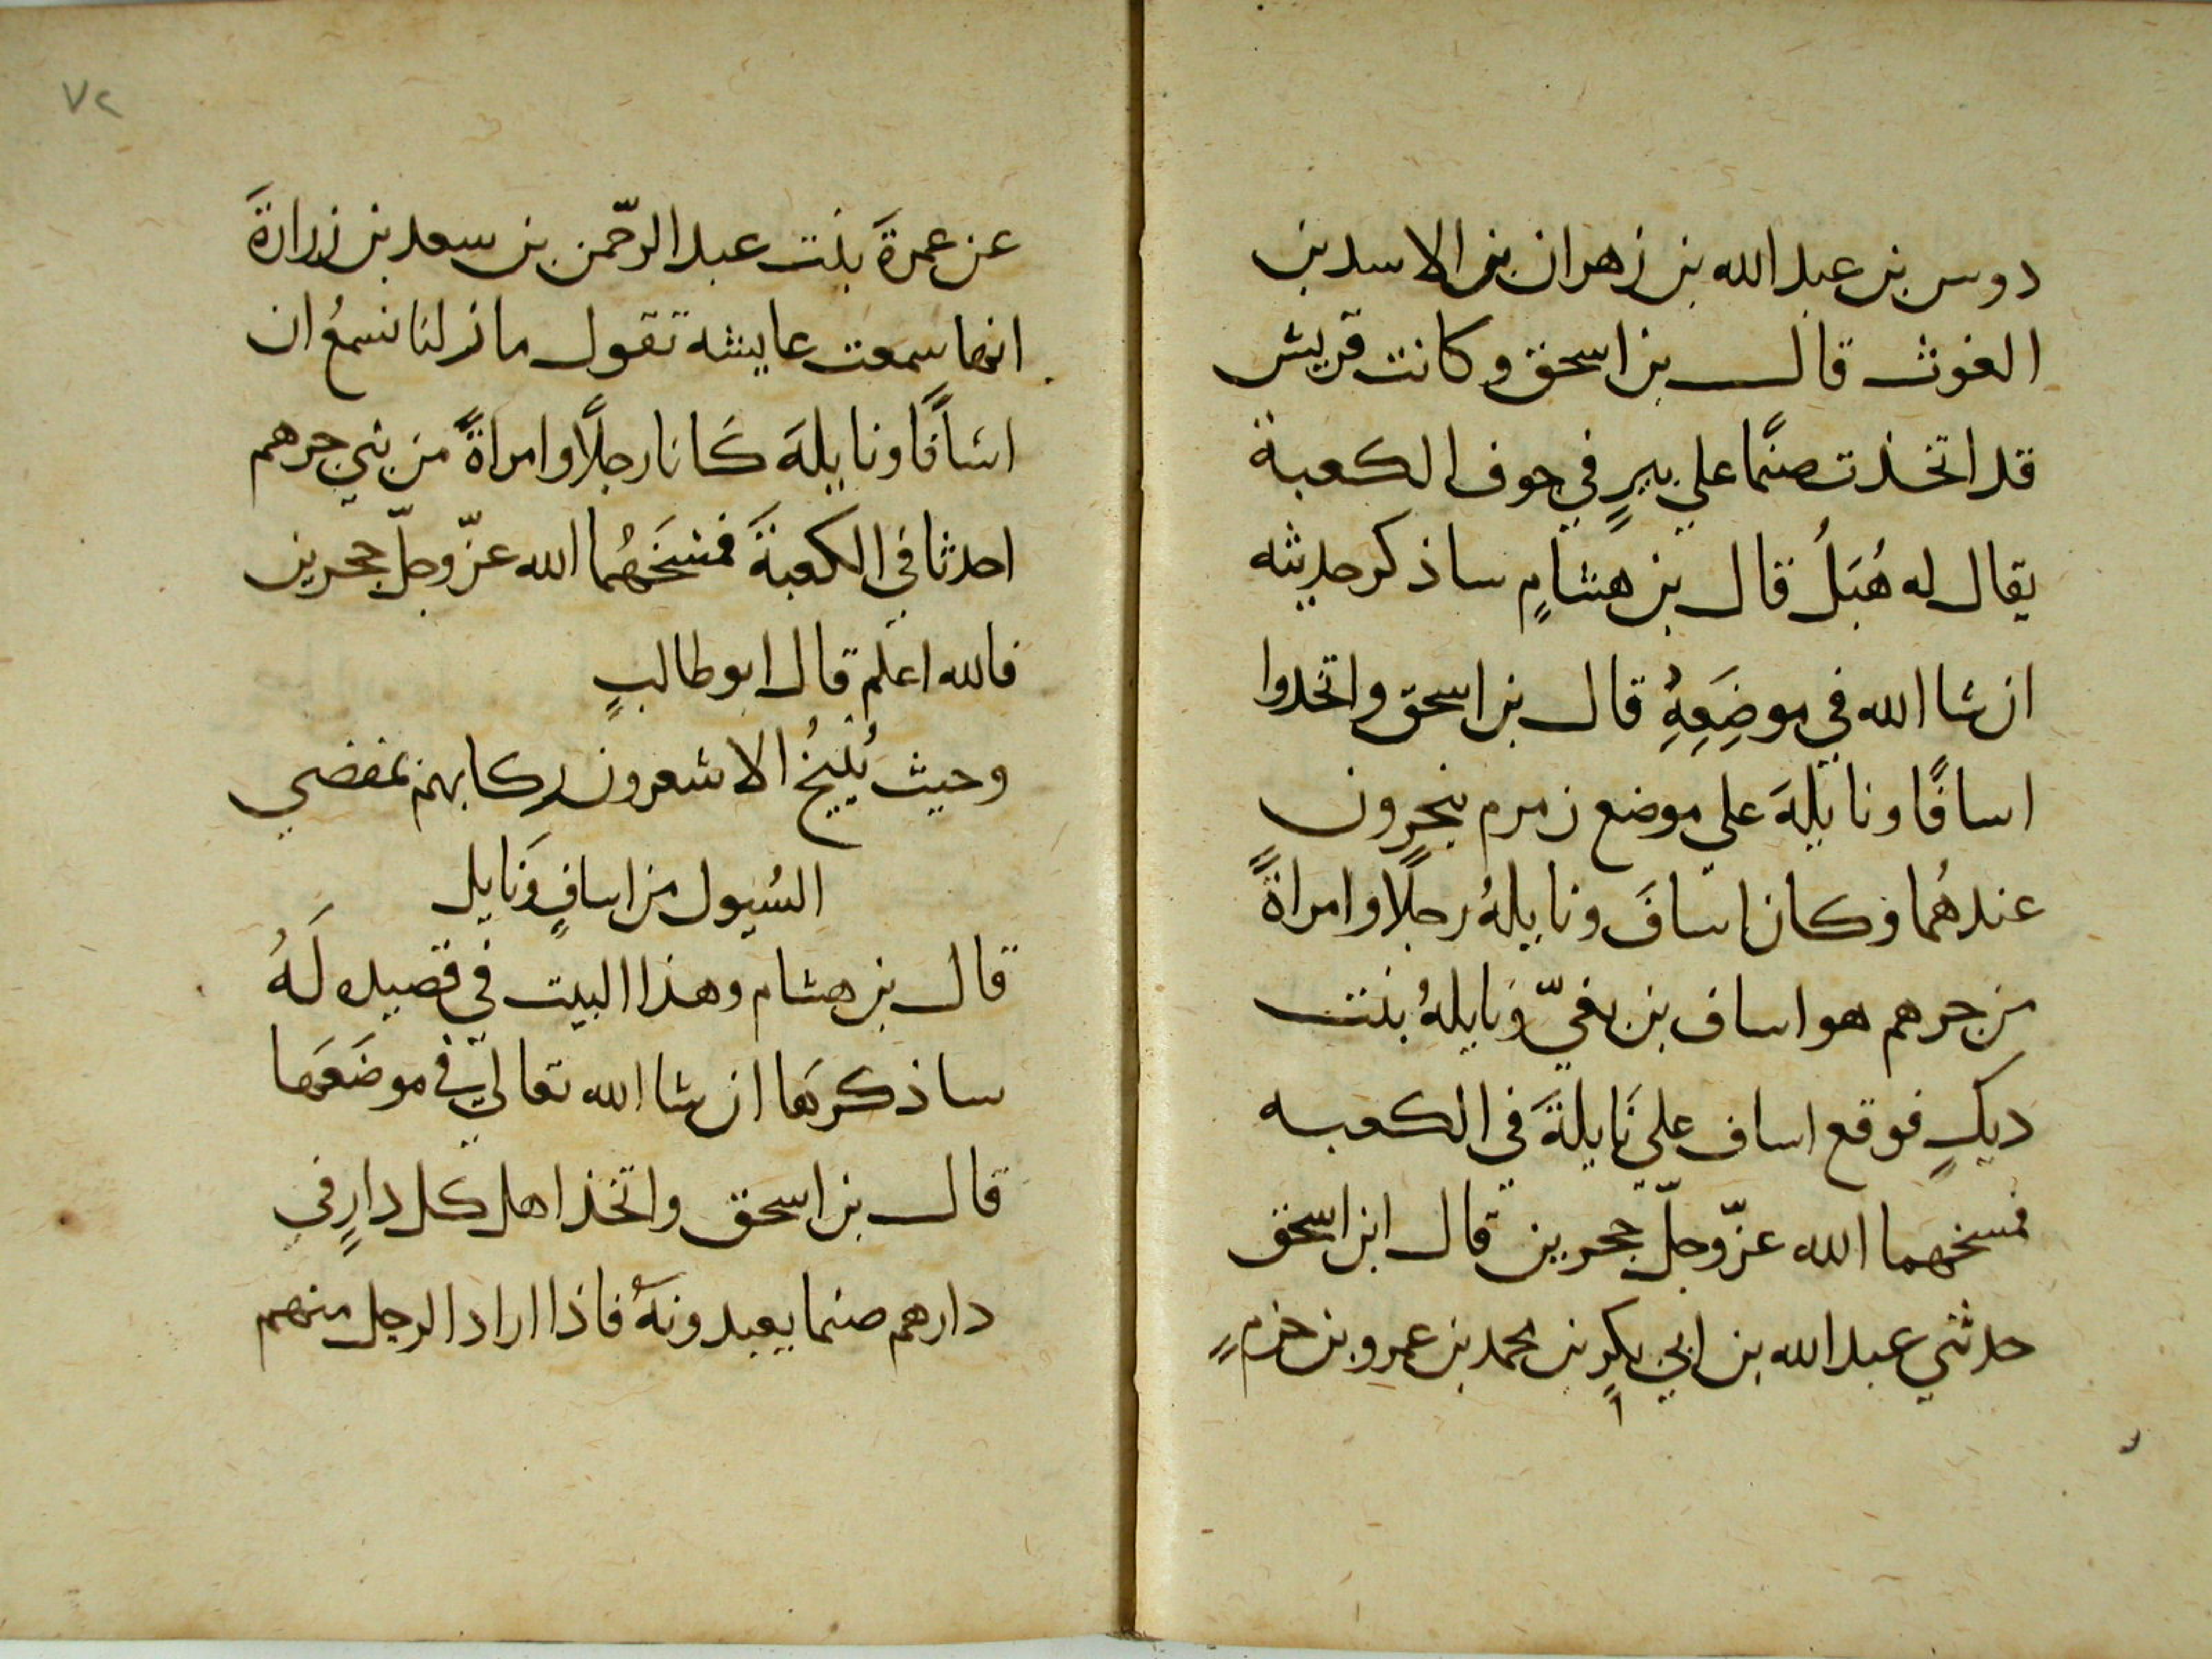 دوس بن عبد الله بن زهران بن الاسد بن
الغوث قال بن اسحق وكانت قريش
قد اتخذت صنمًا علي بيرٍ في جوف الكعبة
يقال له هُبَلُ قال بن هشامٍ ساذكر حديثه
ان شا الله في موضِعِهِ قال بن اسحق واتخدوا
اسافًا ونايلةَ علي موضع زمزم ينحرون
عندهُما وكان اسافَ ونايلةُ رجلًا وامراةً
من جرهم هو اساف بن بغيّ ونايلةُ بنت
ديكٍ فوقع اساف علي نَايلةَ في الكعبه
فمسخهما الله عزّ وجلّ حجرين قال ابن اسحق
حدثني عبد الله بن ابي بكرٍ بن محمد بن عمرو بن حزمٍ
٧٢
عن عمرةَ بنت عبد الرحّمن بن سعد بن زرارةَ
انها سمعت عايشه تقول ما زلنا نسمعُ ان
اسَافًا ونايلةَ كَانا رجلًا وامراةً من بني جرهم
احدثا في الكعبةَ فمسَخَهُما الله عزّ وجلّ حجرين
فالله اعلم قال ابو طالبٍ
وحيث يُنيخُ الاشعرون ركابهم بمفضي
السُيول من اسافٍ ونَايل
قال بن هشام وهذا البيت في قصيده لَهُ
ساذكرهَا ان شا الله تعالي في موضَعَها
قال بن اسحق واتخذ اهل كل دارٍ في
دارهم صنما يعبدونهُ فاذا اراد الرجل منهم